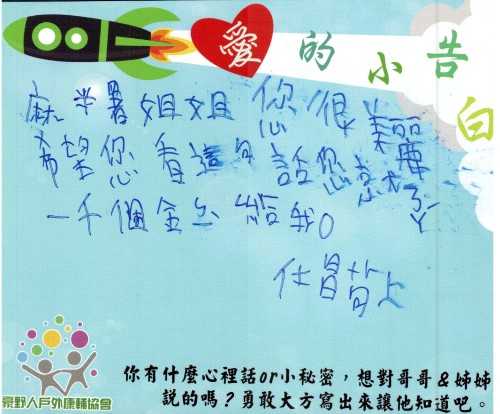 愛的小告白
麻糬姐姐 您很美麗
希望您看這句話您
一千個金給我。
你有什麼心裡話or小秘密，想對哥哥&姊姊
說的嗎？勇敢大方寫出來讓他知道吧。
野人戶外康輔協會